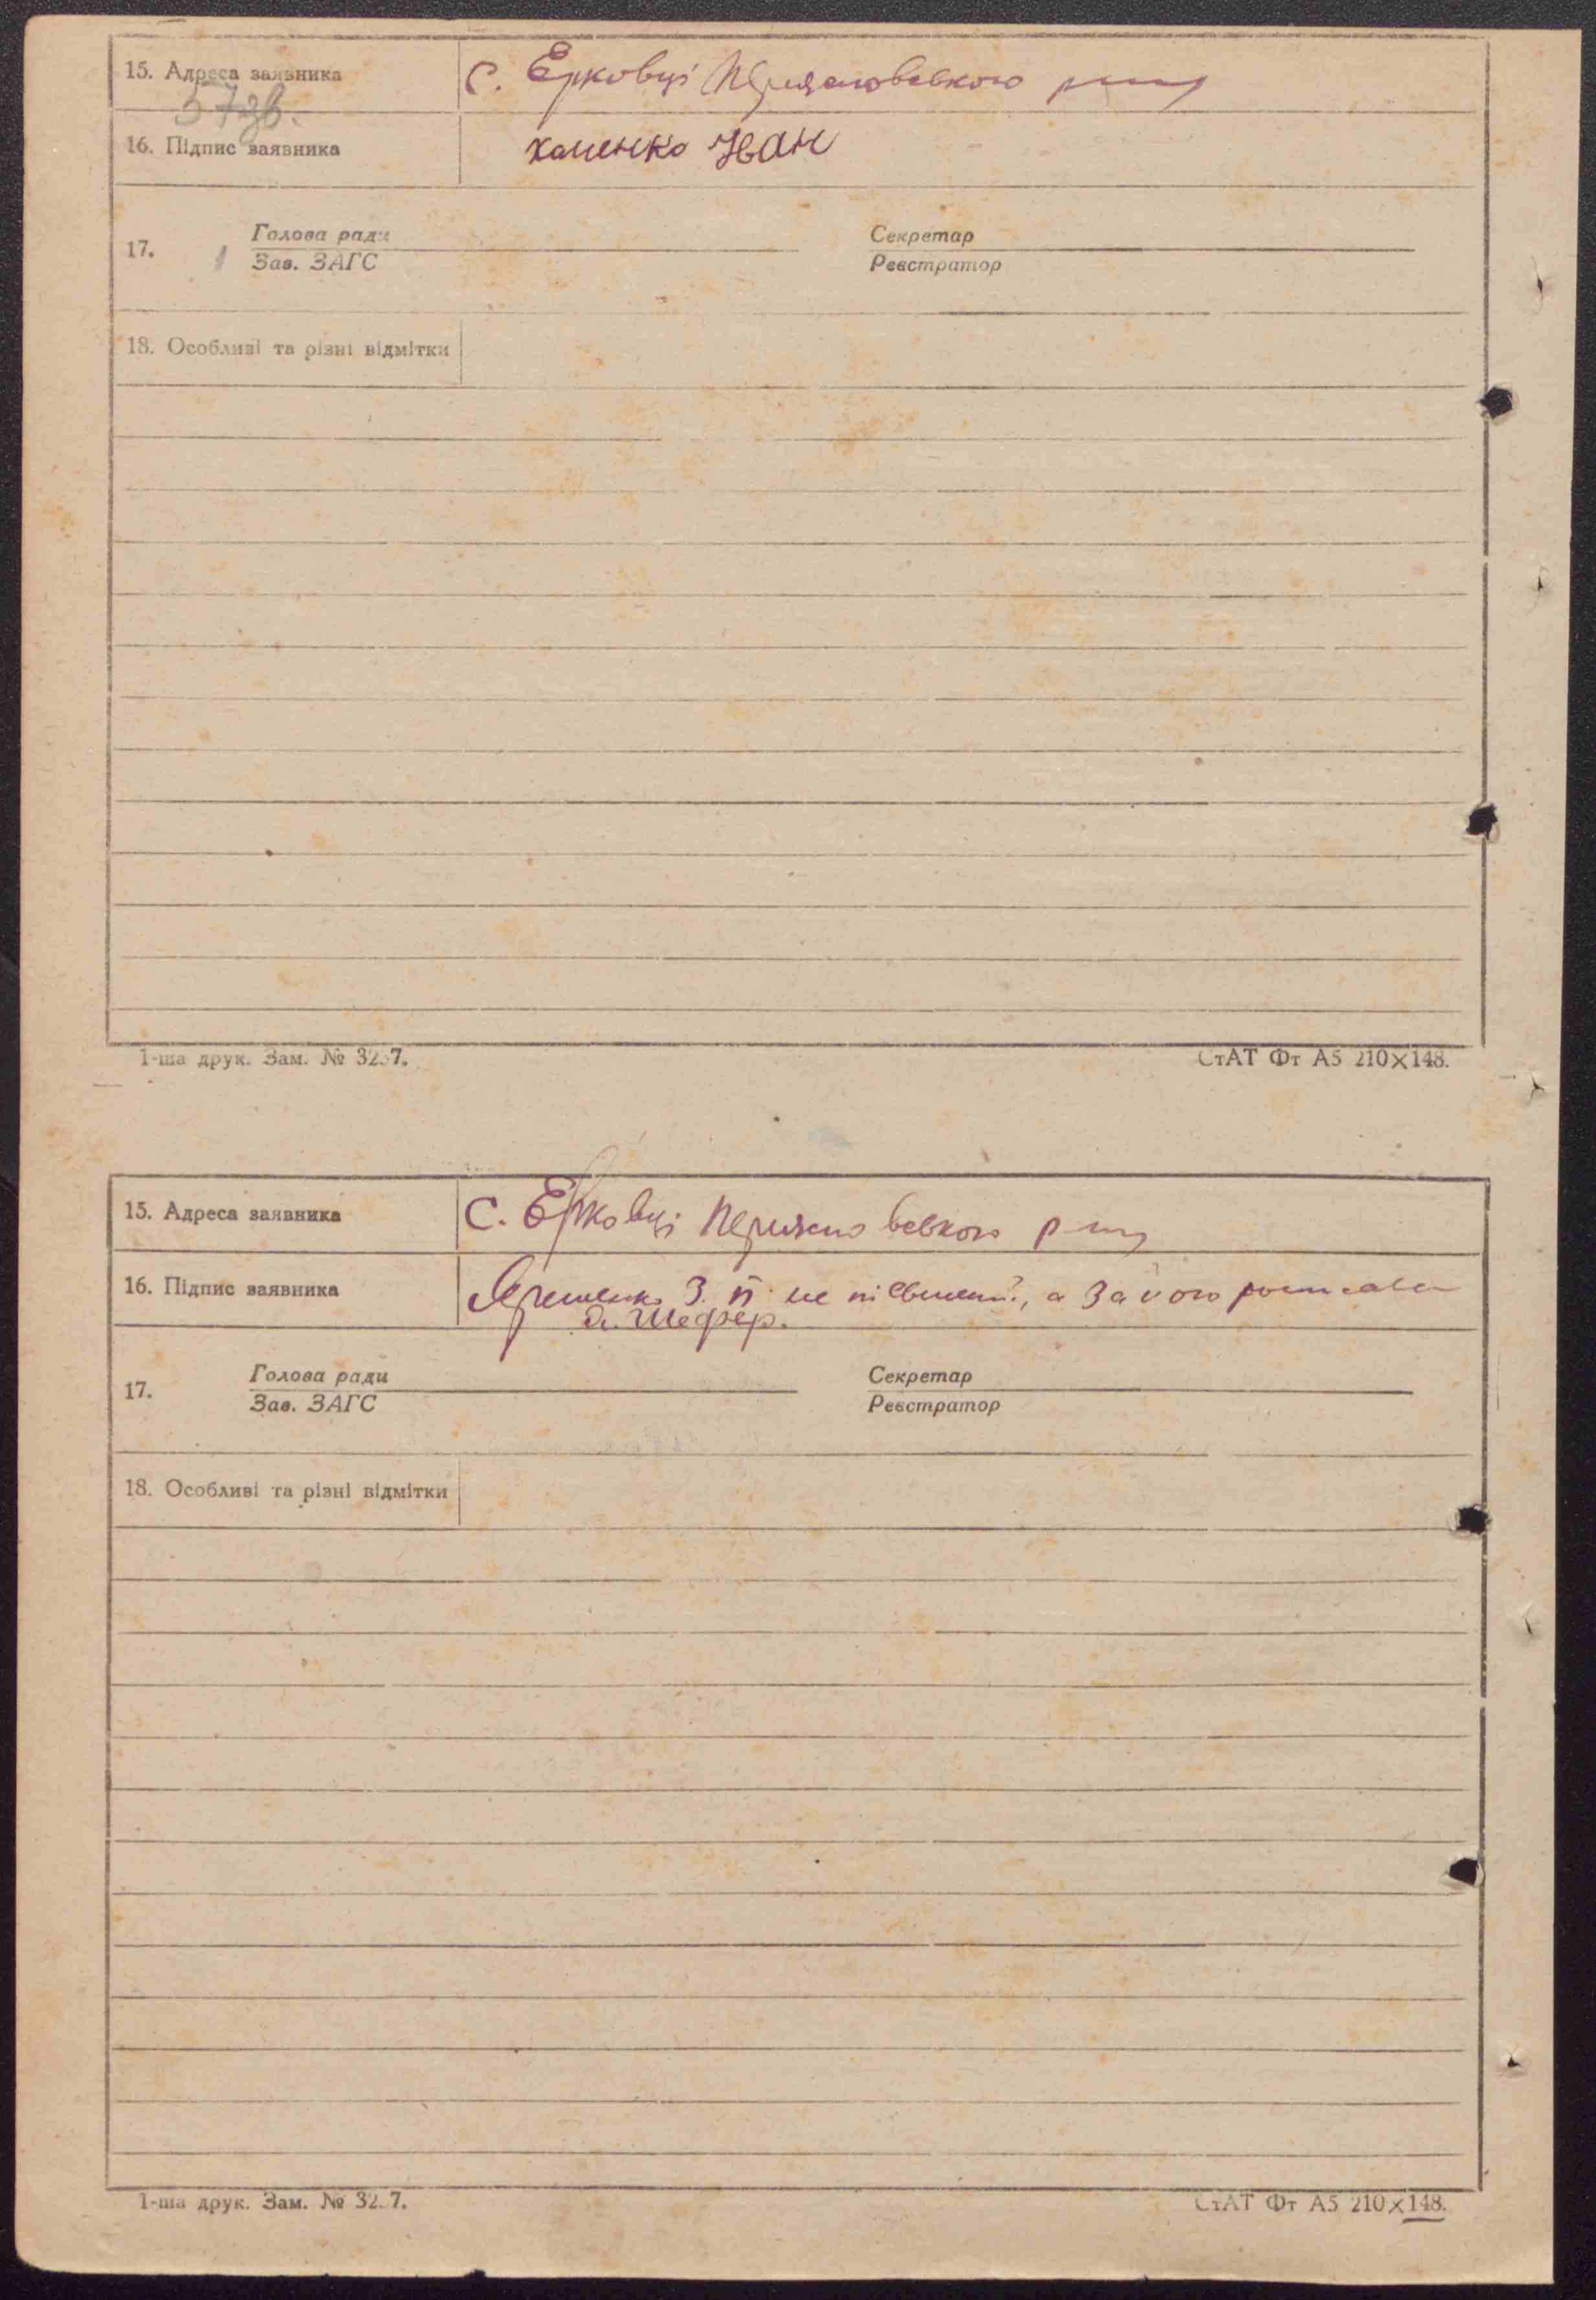 15. Адреса заявника С. Ерковці Переяславського
37 зв.
16. Підпис заявника Хоменко Іван
17. Голова ради Секретар
Зав. ЗАГС Реєстратор
18. Особливі та різні відмітки
1-ша друк. Зам. № 32 7. СтАТ Фт А5 210×148.
15. Адреса заявника С. Ерковці
16. Підпис заявника З. П. не а за його
Шефер.
17. Голова ради Секретар
Зав. ЗАГС Реєстратор
18. Особливі та різні відмітки
1-ша друк. Зам. № 32 7. СтАТ Фт А5 210×148.